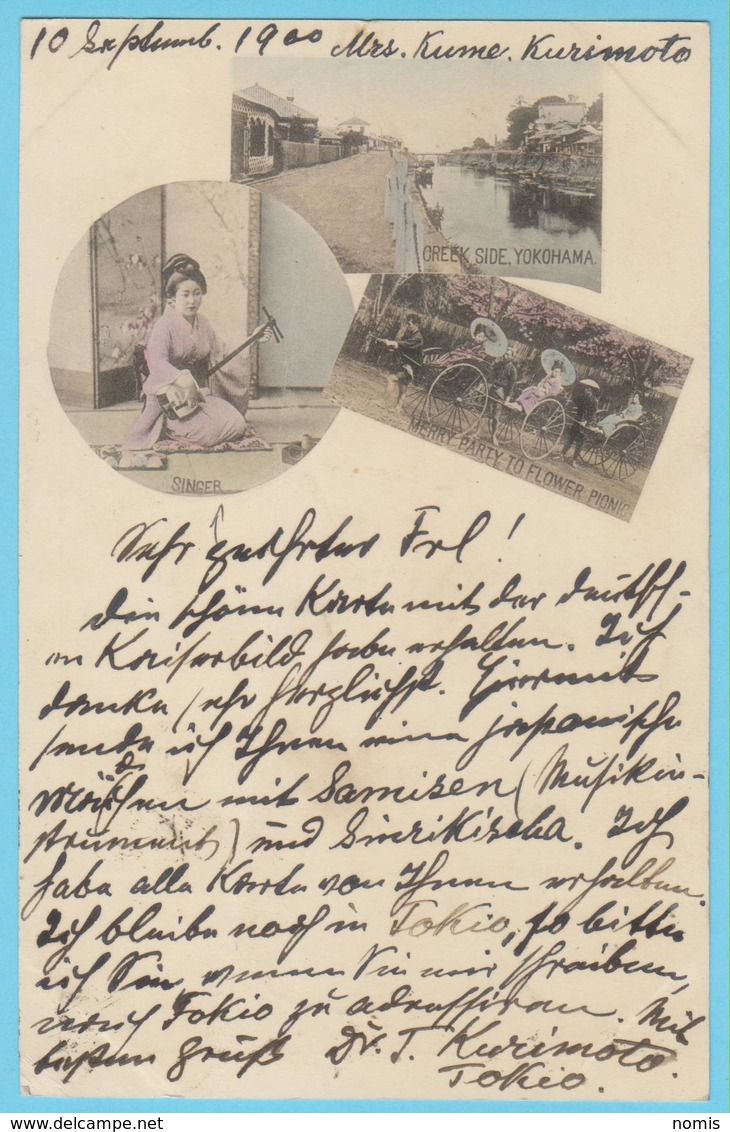 10 Septemb. 1900 Mrs. Kume. Kurimoto
CREEK SIDE, YOKOHAMA.
MERRY PARTY TO FLOWER PICNIC
SINGER
Sehr geehrtes Frl!
Die schöne Karte mit der deutsch-
en Kaiserbild habe erhalten. Ich
danke sehr herzlichst. Hiermit
sende ich Ihnen eine japanische
Mädchen mit Samisen (Musikin-
strument) und Sinrikischa. Ich
habe alle Karte von Ihnen erhalten.
Ich bleibe noch in Tokio, so bitte
ich Sie, wenn Sie mir schreiben,
nach Tokio zu adressiren. Mit
besten Gruß Dr. T. Kurimoto.
Tokio.
nomis